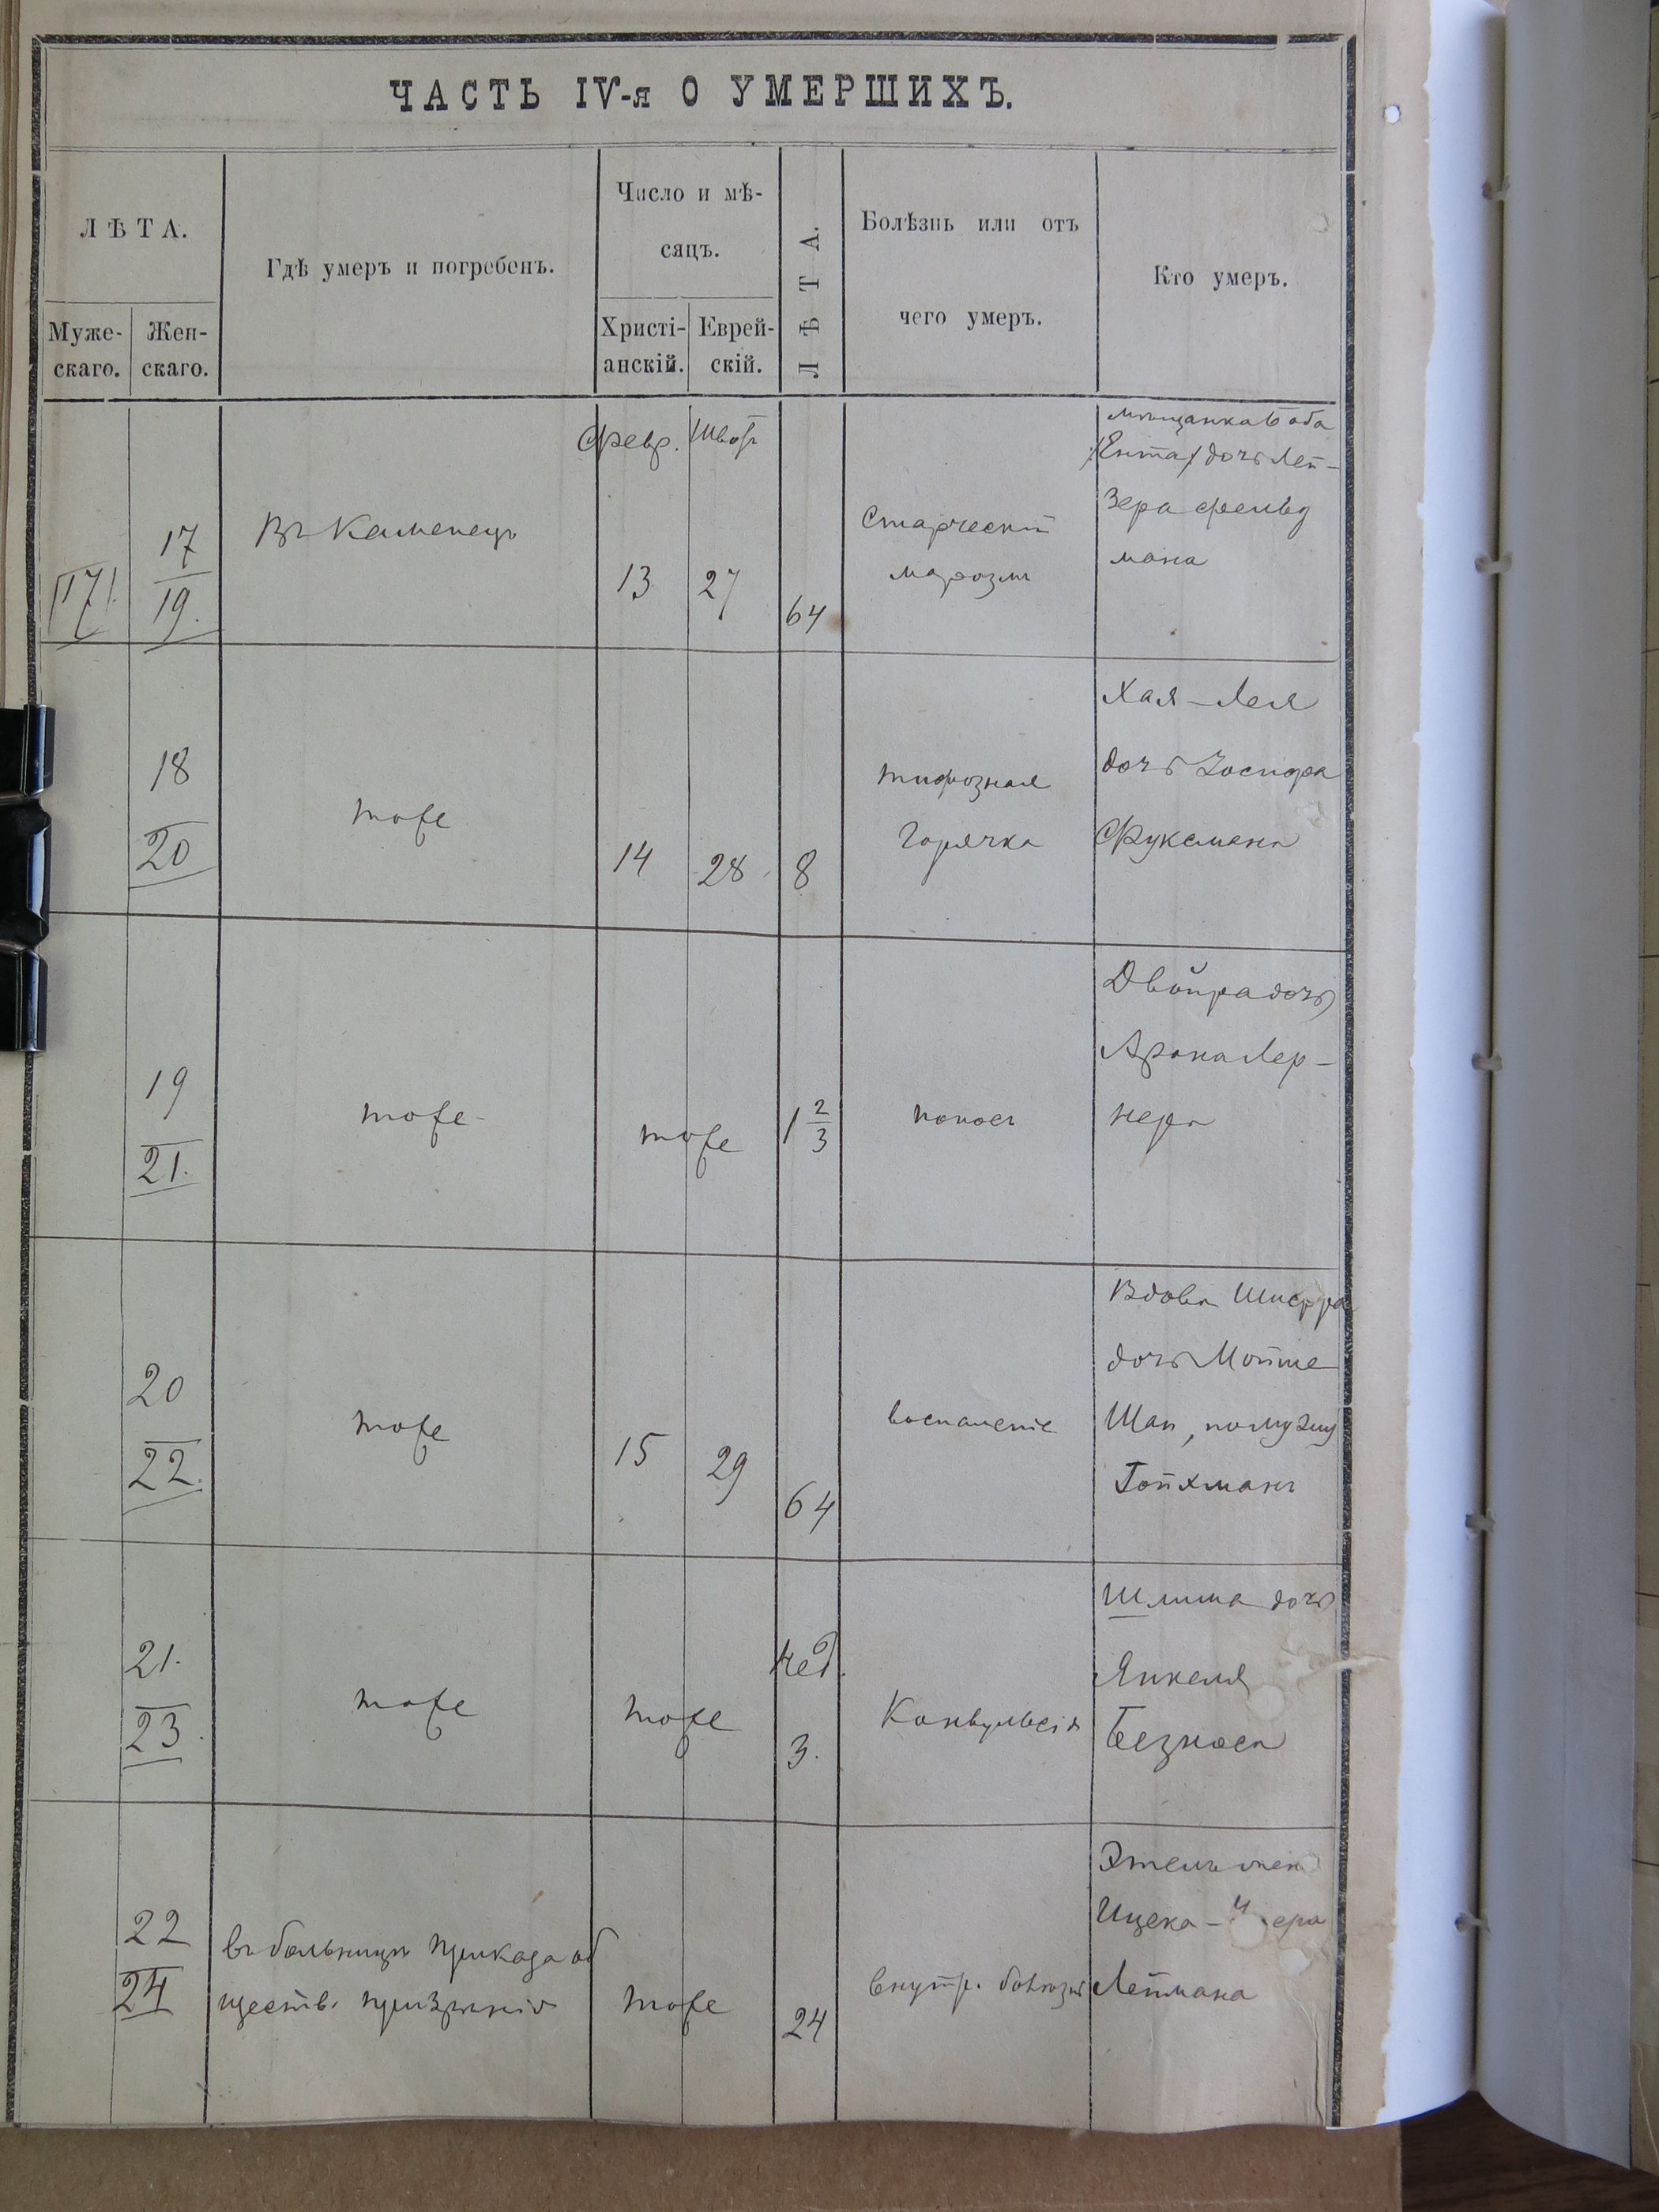 ЧАСТЬ IV-я О УМЕРШИХЪ.
ЛѢТА.
Муже-
скаго.
Жен-
скаго.
Гдѣ умеръ и погребенъ.
Число и мѣ-
сяцъ.
Христі-
анскій.
Еврей-
скій.
ЛѢТА.
Болѣзнь или отъ
чего умеръ.
Кто умеръ.
17
17
19.
Въ Каменецѣ
Февр.
13
Шватъ
27
64
Старческій
маразмъ
мѣщанка Боба
/Ента/ дочь Лей-
зера Фельд
мана
18
20
тоже
14
28
8
тифозная
горячка
Хая-Лея
дочь Іосифа
Фуксмана
19
21.
тоже
тоже
1 2/3
поносъ
Двойра дочь
Арона Лер-
нера
20
22.
тоже
15
29
64
воспаленіе
Вдова Шифра
дочь Мойше
Шап, по мужу
Гойхманъ
21.
23.
тоже
тоже
нед.
3.
Конвульсія
дочь
Янкеля
Безноса
22
24
въ больницѣ приказа об
ществ. призрѣнія
тоже
24
внутр. болѣзнь
Этель жен
Ицека-
Лейтмана